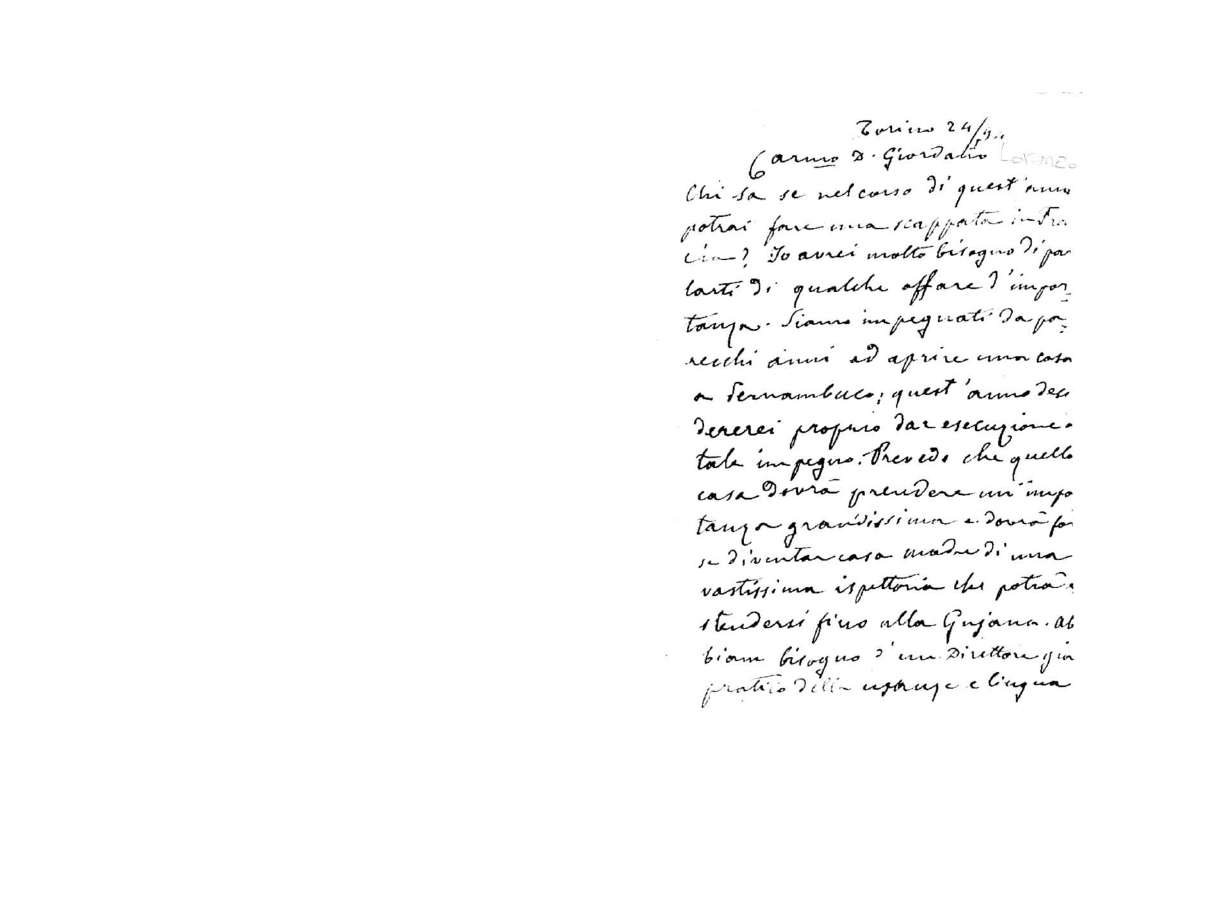 Torino 24/9
Carmo D. Giordano Lorenzo
Chi sa se nel corso di quest'anno
potrai fare una scappata in Fra
cia? Io avrei molto bisogno di par
larti di qualche affare d'impor-
tanza. Siamo impegnati da pa-
recchi anni ad aprire una casa
a Pernambuco; quest'anno desi
dererei proprio dar esecuzione a
tale impegno. Prevedo che quella
casa dovrà prendere un'impo
tanza grandissima e dovrà for
se diventar casa madre di una
vastissima ispettoria che potrà e
stendersi fino alla Gujana. Ab
biam bisogno d'un Direttore già
pratico delle usanze e lingua